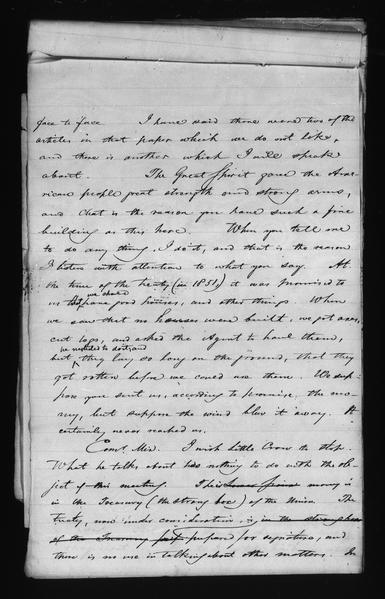 face to face   I have said there were two of the
articles in that paper which we do not like,
and there is another which I will speak
about.   The Great Spirit gave the Ame-
rican people great strength and strong arms,
and that is the reason you have such a fine
building as this here.   When you tell me
to do any thing, I do it, and that is the reason
I listen with attention to what you say.   At
the time of the treaty (in 1851) it was promised to
us that we should have good houses, and other things.   When
we saw that no houses were built, we got axes,
cut logs, and asked the Agent to haul them,
but he neglected to do it, and they lay so long on the ground, that they
got rotten before we could use them.   We sup-
pose you sent us, according to promise, the mo-
ney, but suppose the wind blew it away.   It
certainly never reached us.
Com.r Mix.   I wish Little Crow to stop.
What he talks about has nothing to do with the ob-
ject of this meeting.   This money is
in the Treasury (the strong box) of the Union.   The
treaty, now under consideration, is in the strong box
of the Treasury prepared for signature, and
there is no use in talking about other matters.   In